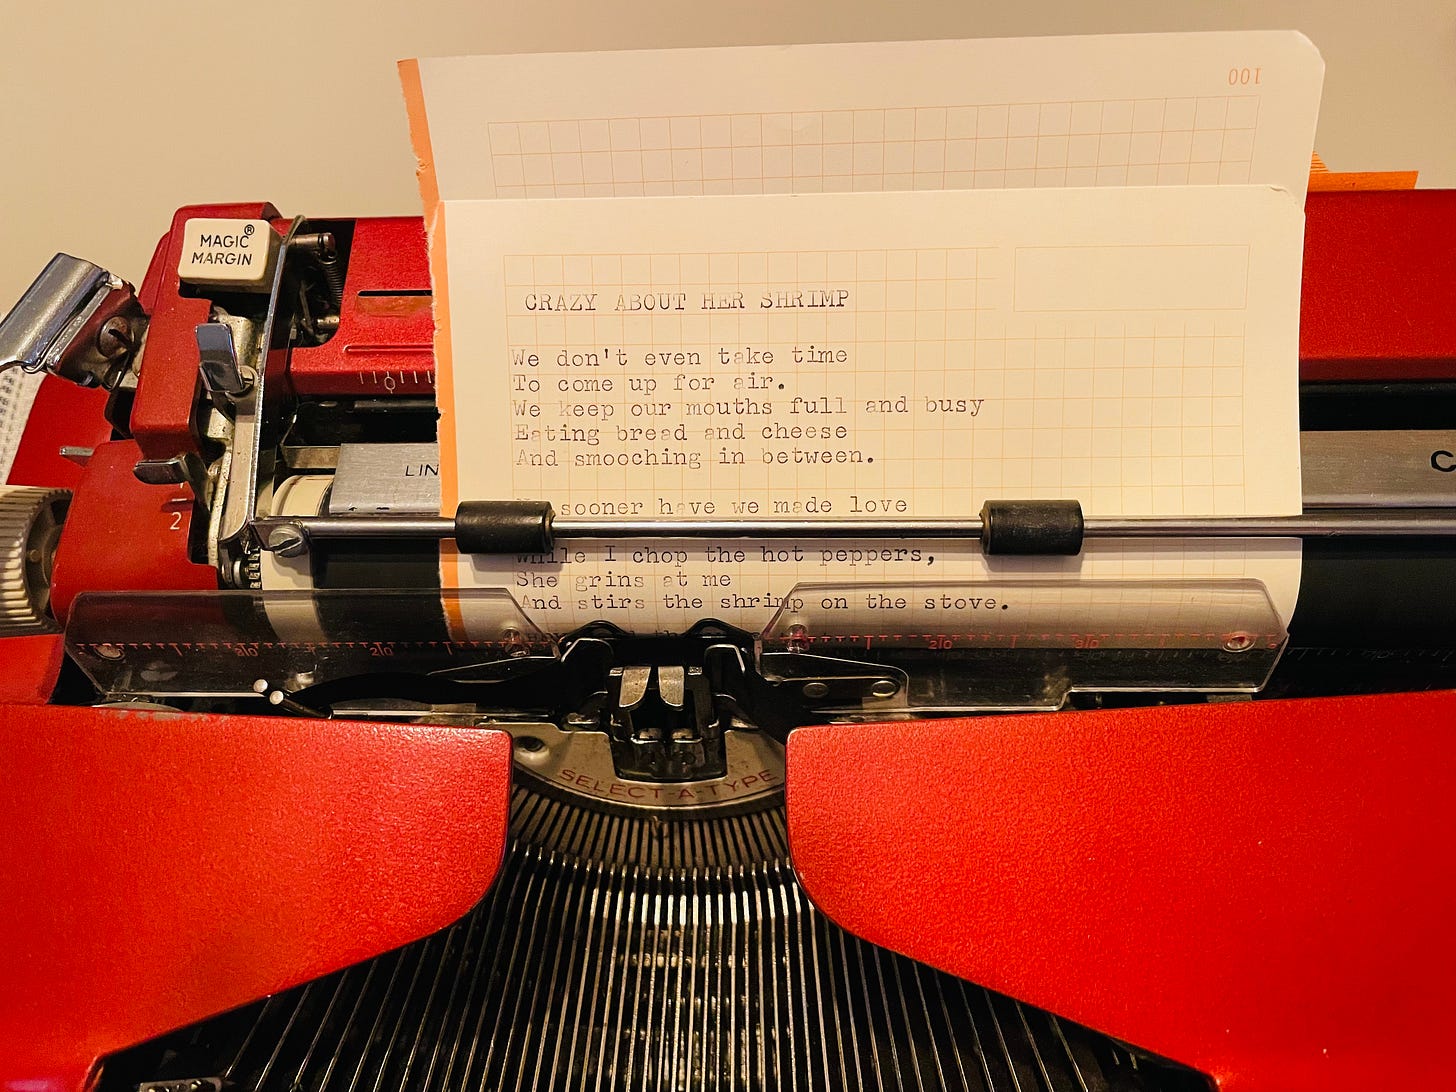 100
MAGIC®
MARGIN
CRAZY ABOUT HER SHRIMP
We don't even take time
To come up for air.
We keep our mouths full and busy
Eating bread and cheese
And smooching in between.
sooner have we made love
While I chop the hot peppers,
She grins at me
And stirs the shrimp on the stove.
LIN
C
2
20
30
SELECT-A-TYPE